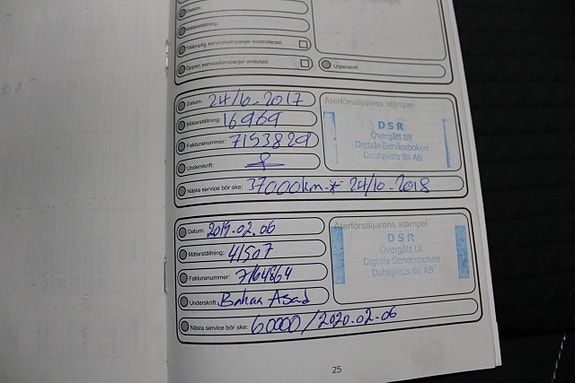 Datum:
Mätarställning:
Tillämplig servicekampanjer kontrollerad:
Öppen servicekampanjer avslutad:
Underskrift:
Datum: 24/10-2017
Mätarställning: 16969
Fakturanummer: 7153829
Underskrift:
Återförsäljarens stämpel
DSR
Övergått till
Digitala Serviceboken
Dahlqvists Bil AB
Nästa service bör ske: 37000km * 24/10-2018
Datum: 2019.02.06
Mätarställning: 41507
Fakturanummer: 7164864
Underskrift: Bahaa Asad
Återförsäljarens stämpel
DSR
Övergått till
Digitala Serviceboken
Dahlqvists Bil AB
Nästa service bör ske: 60000/2020.02.06
25